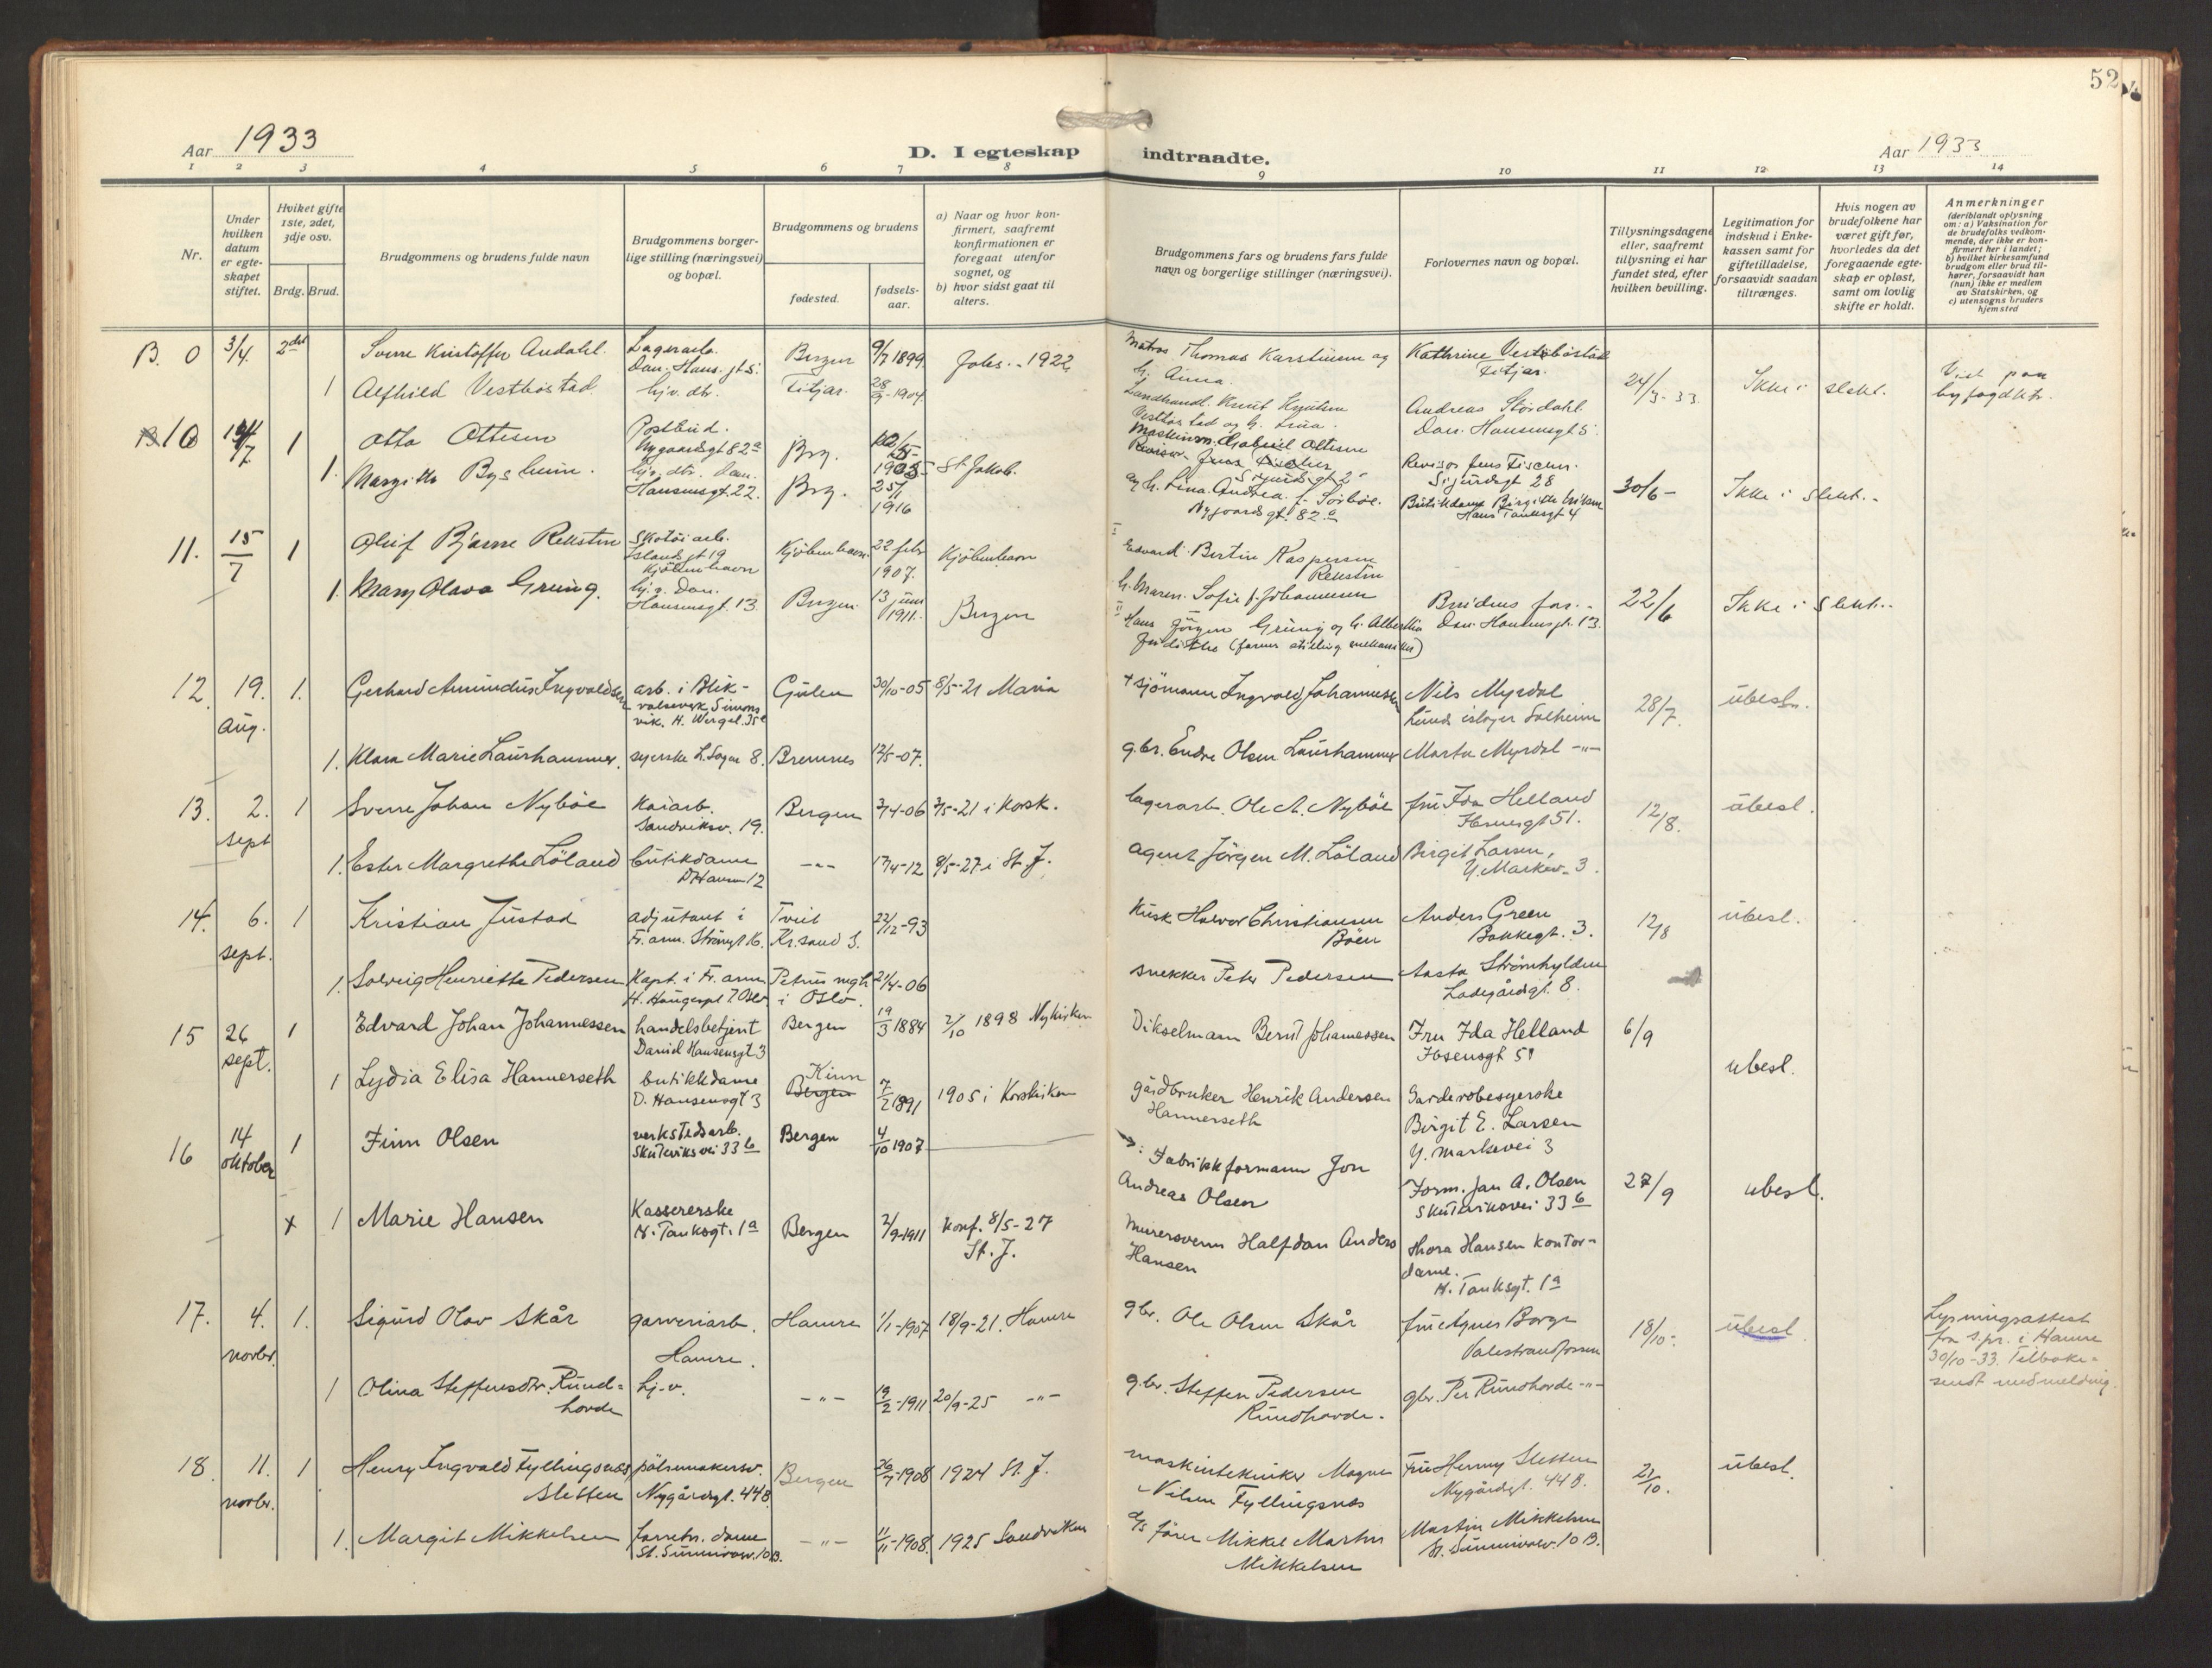 52
Aar 1933
D. I egteskap indtraadte.
Aar 1933
1 2 3 4 5 6 7 8 9 10 11 12 13 14
Nr.
Under hvilken datum er egteskapet stiftet.
Hvilket gifte 1ste, 2det, 3dje osv.
Brdg. Brud.
Brudgommens og brudens fulde navn
Brudgommens borgerlige stilling (næringsvei) og bopæl.
Brudgommens og brudens
fødested.
fødselsaar.
a) Naar og hvor konfirmert, saafremt konfirmationen er foregaat utenfor sognet, og
b) hvor sidst gaat til alters.
Brudgommens fars og brudens fars fulde navn og borgerlige stillinger (næringsvei).
Forlovernes navn og bopæl.
Tillysningsdagene eller, saafremt tillysning ei har fundet sted, efter hvilken bevilling.
Legitimation for indskud i Enkekassen samt for giftetilladelse, forsaavidt saadan tiltrænges.
Hvis nogen av brudefolkene har været gift før, hvorledes da det foregaaende egteskap er opløst, samt om lovlig skifte er holdt.
Anmerkninger (deriblandt oplysning om: a) Vaksination for de brudefolks vedkommende, der ikke er konfirmert her i landet; b) hvilket kirkesamfund brudgom eller brud tilhører, forsaavidt han (hun) ikke er medlem av Statskirken, og c) utensogns bruders hjemsted
B. 0 3/4. 2det Sverre Kristoffer Andahl. Lagerarb. Dan. Hans. gt 5. Bergen 9/7 1899 Johs. - 1922
Matros Thomas Karstinsen og h. Anna. Kathrine Vestbøstad Fitjar. 24/3-33 Ikke i slekt.
1 Alfhild Vestbøstad. hjv. dtr. Fitjar. 28/9-1904
Landhandl. Knut Knutsen Vestbøstad og h. Lina. Andreas Stordahl. Dan. Hansensgt 5.
10 1 Otto Ottesen Postbud. Nygaardsgt 82a Brg. 1905 St. Jakob.
Maskinm. Gabriel Ottesen og h. Lina Andrea Nygaardsgt. 82a Revisor Jens Fischer. Sigurdsgt 28 30/6- Ikke i slekt.-
1. Margithe Bysheim. hj. v. dtr. Dan. Hansensgt. 22. Brg. 25/1 1916
Hans Tanksgt 4
11. 15/7 1 Oluf Bjarne Reksten Skotøiarb. Islands gt 19 Kjøbenhavn Kjøbenhavn 22 febr 1907. Kjøbenhavn
I Edvard Bertin Kaspersen Reksten h. Maren Sofie f. Johannesen Brudens far.- Dan. Hansensgt. 13. 22/6 Ikke i slekt..
1. Mary Olava Grung. hj. v. Dan. Hansensgt. 13. Bergen 13 juni 1911. Bergen
II Hans Jörgen Grung og h. Albertha (farens stilling mekaniker)
12. 19. aug. 1. Gerhard Amundus Ingvaldsen arb. i Blikvalseverk, Simonsvik. H. Wergel. 35e Gulen 30/10-05 8/5-21 Maria
+ sjömann Ingvald Johannesen Nils Myrdal Lunds islager Solheim 28/7. ubesl.
1. Klara Marie Laurhammer. syerske L. Sagen 8. Bremnes 12/5-07.
g.br. Endre Olsen Laurhammer Marta Myrdal -"-
13. 2. sept 1 Sverre Johan Nybøe Kaiarb. Sandviksv. 19. Bergen 7/4-06 7/5-21 i Korsk.
lagerarb. Ole A. Nybøe fru Ida Helland Ibsensgt 51. 12/8. ubesl.
1. Ester Margrethe Löland butikdame D Hansen 12 -"- 17/4-12 8/5-27 i St. J.
agent Jörgen M. Löland Birgit Larsen, Y. Markev. 3.
14. 6. sept. 1 Kristian Justad adjutant i Fr. arm. Strangt 16. Tveit Kr.sand S. 22/12-93
Kusk Halvor Christiansen Böen Anders Green Bakkegt. 3. 12/8 ubesl.
1. Solveig Henriette Pedersen Kapt. i Fr. arm H. Haugespl 7 Oslo Petrus mgh i Oslo. 21/4-06
snekker Peter Pedersen Aasta Strömhylden Ladegårdsgt. 8.
15 26 sept. 1 Edvard Johan Johannessen handelsbetjent Daniel Hansensgt 3 Bergen 19/3 1884 2/10 1898 Nykirken
Dikselmann Bernt Johannessen Fru Ida Helland Ibsensgt 51 6/9 ubesl.
1 Lydia Elisa Hannerseth butikkdame D. Hansensgt 3 Kinn Bergen 7/2 1891 1905 i Korskirken
gårdbruker Henrik Andersen Hannerseth Garderobesyerske Birgit E. Larsen Y. Markevei 3
16 14 oktober 1 Finn Olsen verkstedsarb. Skuteviksvei 33 b Bergen 4/10 1907
Fabrikkformann Jon Andreas Olsen Form. Jan A. Olsen Skuteviksvei 33 b 27/9 ubesl.
x 1 Marie Hansen Kassererske H. Tanksgt. 1a Bergen 2/9-1911 konf. 8/5-27 St. J.
Murersvenn Halfdan Anders Hansen Thora Hansen kontordame. H. Tanksgt. 1a
17. 4. novbr. 1. Sigurd Olav Skår garveriarb. Hamre. Hamre 1/1-1907 18/9-21. Hamre
gbr. Ole Olsen Skår fru Agnes Borge Valestrandfossen 18/10- ubesl. Lysningsattest fra s.pr. i Hamre 30/10-33. Tilbakesendt m. melding.
1 Olina Steffensdtr. Rundhovde hj.-v. -"- 19/2-1911 20/9-25 -"-
g.br. Steffen Pedersen Rundhovde. gbr. Per Rundhovde -"-
18. 11. novbr. 1 Henry Ingvald Fyllingsnes Sletten pölsemakersv. Nygårdsgt. 44 B Bergen 26/7-1908 1924 St. J.
maskintekniker Magne Nilsen Fyllingsnes Fru Henny Sletten Nygårdsgt. 44 B. 21/10. ubesl.
1. Margit Mikkelsen forretn. dame St. Sunnivav. 10 B. -"- 11/11-1908. 1925 Sandviken
d/s förer Mikkel Martin Mikkelsen Martin Mikkelsen St. Sunnivav. 10 B.